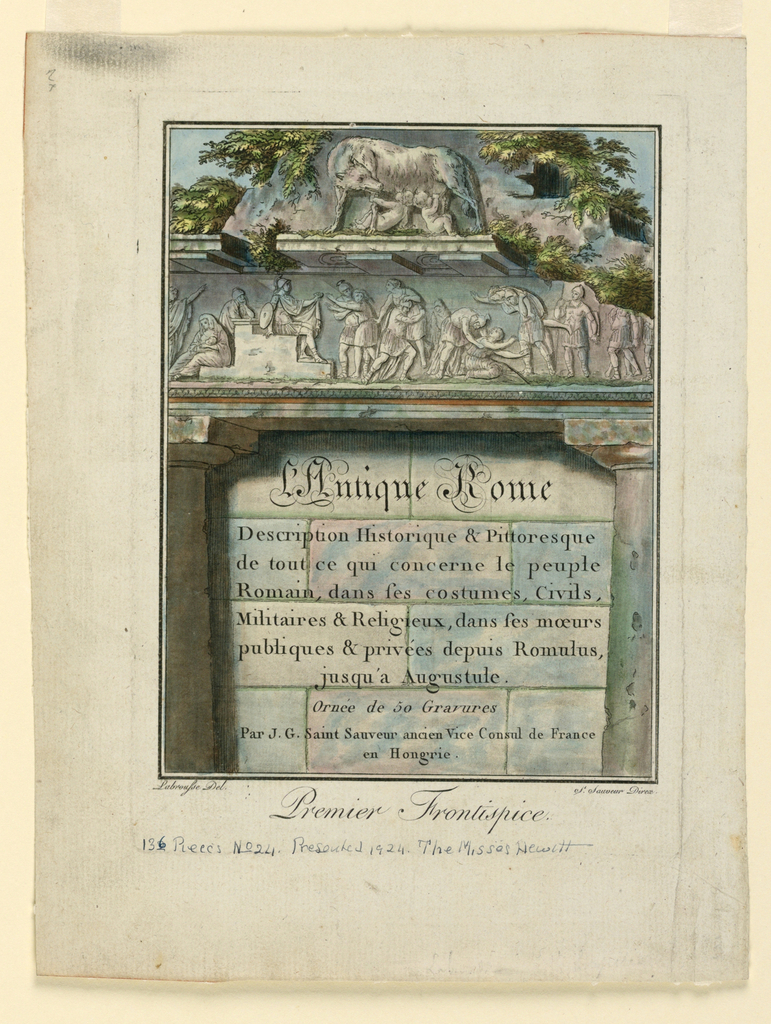 L'Antique Rome
Description Historique & Pittoresque
de tout ce qui concerne le peuple
Romain, dans ſes costumes, Civils,
Militaires & Religieux, dans ſes mœurs
publiques & privées depuis Romulus,
jusqu'a Augustule.
Ornée de 50 Gravures
Par J. G. Saint Sauveur ancien Vice Consul de France
en Hongrie.
Labrousse Del.
St. Sauveur Direx.
Premier Frontispice.
136 Pieces No 24. Presented 1924. The Misses Hewitt